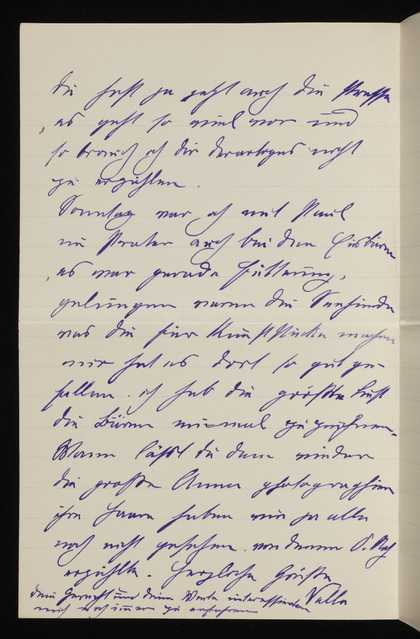 Du hast ja jetzt auch die Presse
, es geht so viel vor und
so brauch ich dir derartiges nicht
zu erzählen.
Sonntag war ich mit Paul
im Prater auch bei den Eisbären
, es war gerade Fütterung,
gelungen waren die Seehunde
was die für Kunststücke machen
mir hat es dort so gut ge-
fallen. ich hab die größte Lust
die Bären einmal zu zeichnen.
Wann läßt du denn wieder
die große Anna photographieren
ihre Haare haben wir ja alle
noch nicht gesehen. von denen
erzählte. Herzliche Grüße
dein Gesicht und deine Werke interessieren Valla
mich noch immer zu